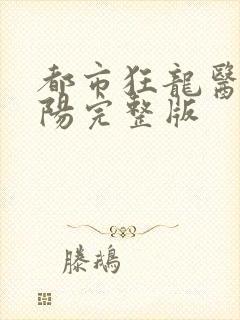 都市狂龍醫
陽完整版
滕鵝